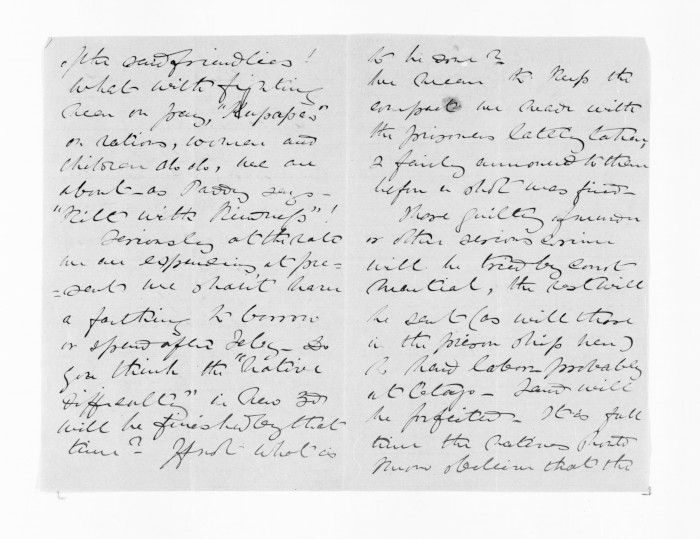 of the said friendlies!
What with fighting
men on pay, "Kupapas"
on rations, women and
children do do, we are
about - as Paddy says -
"Kilt with Kindness"!
Seriously at the rate
we are expending at pre=
=sent we shan't have
a farthing to borrow
or spend after Feby - Do
you think the "Native
difficulty" in New Zd
will be finished by that
time? If not what is
to be done?
We mean to keep the
compact we made with
the prisoners lately taken,
& fairly announced to them
before a shot was fired -
Those guilty of murder
or other serious crime
will be tried by Court
Martial, the rest will
be sent (as will those
in the prison ship here)
to hard labor probably
at Otago - Land will
be forfeited - It is full
time the natives should
know believe that the